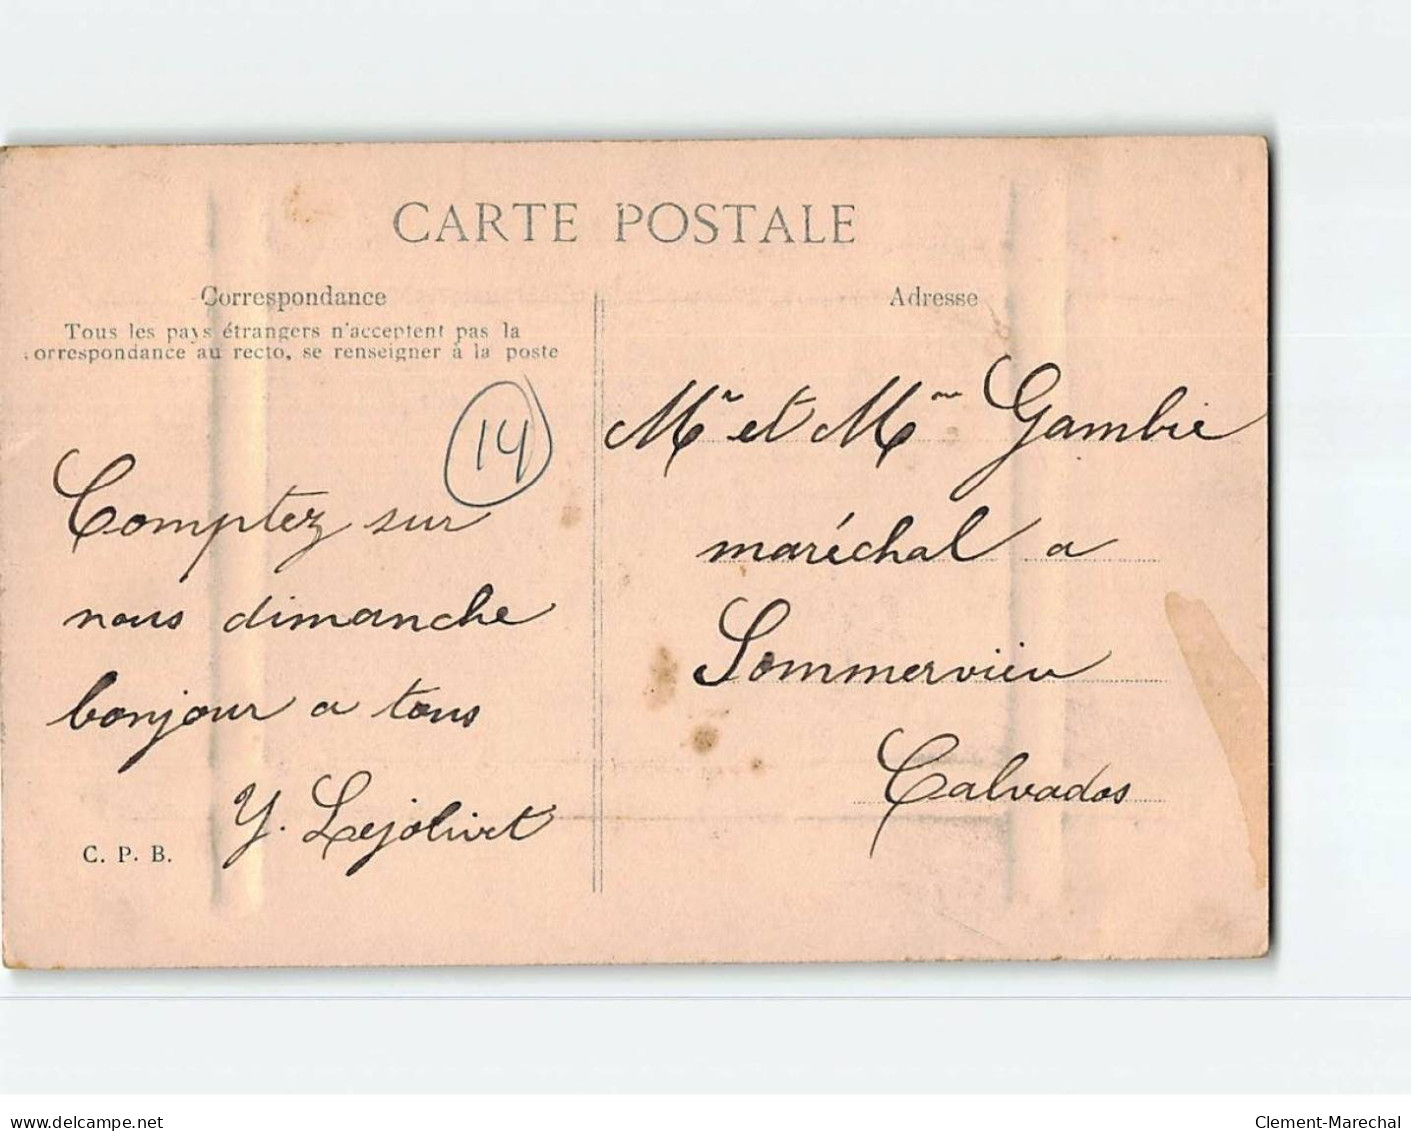 CARTE POSTALE
Correspondance
Tous les pays étrangers n'acceptent pas la
correspondance au recto, se renseigner à la poste
14
Comptez sur
nous dimanche
bonjour a tous
Y. Lejolivet
C. P. B.
Adresse
Mr et Mme Gambie
maréchal a
Sommervieu
Calvados
www.delcampe.net
Clement-Marechal